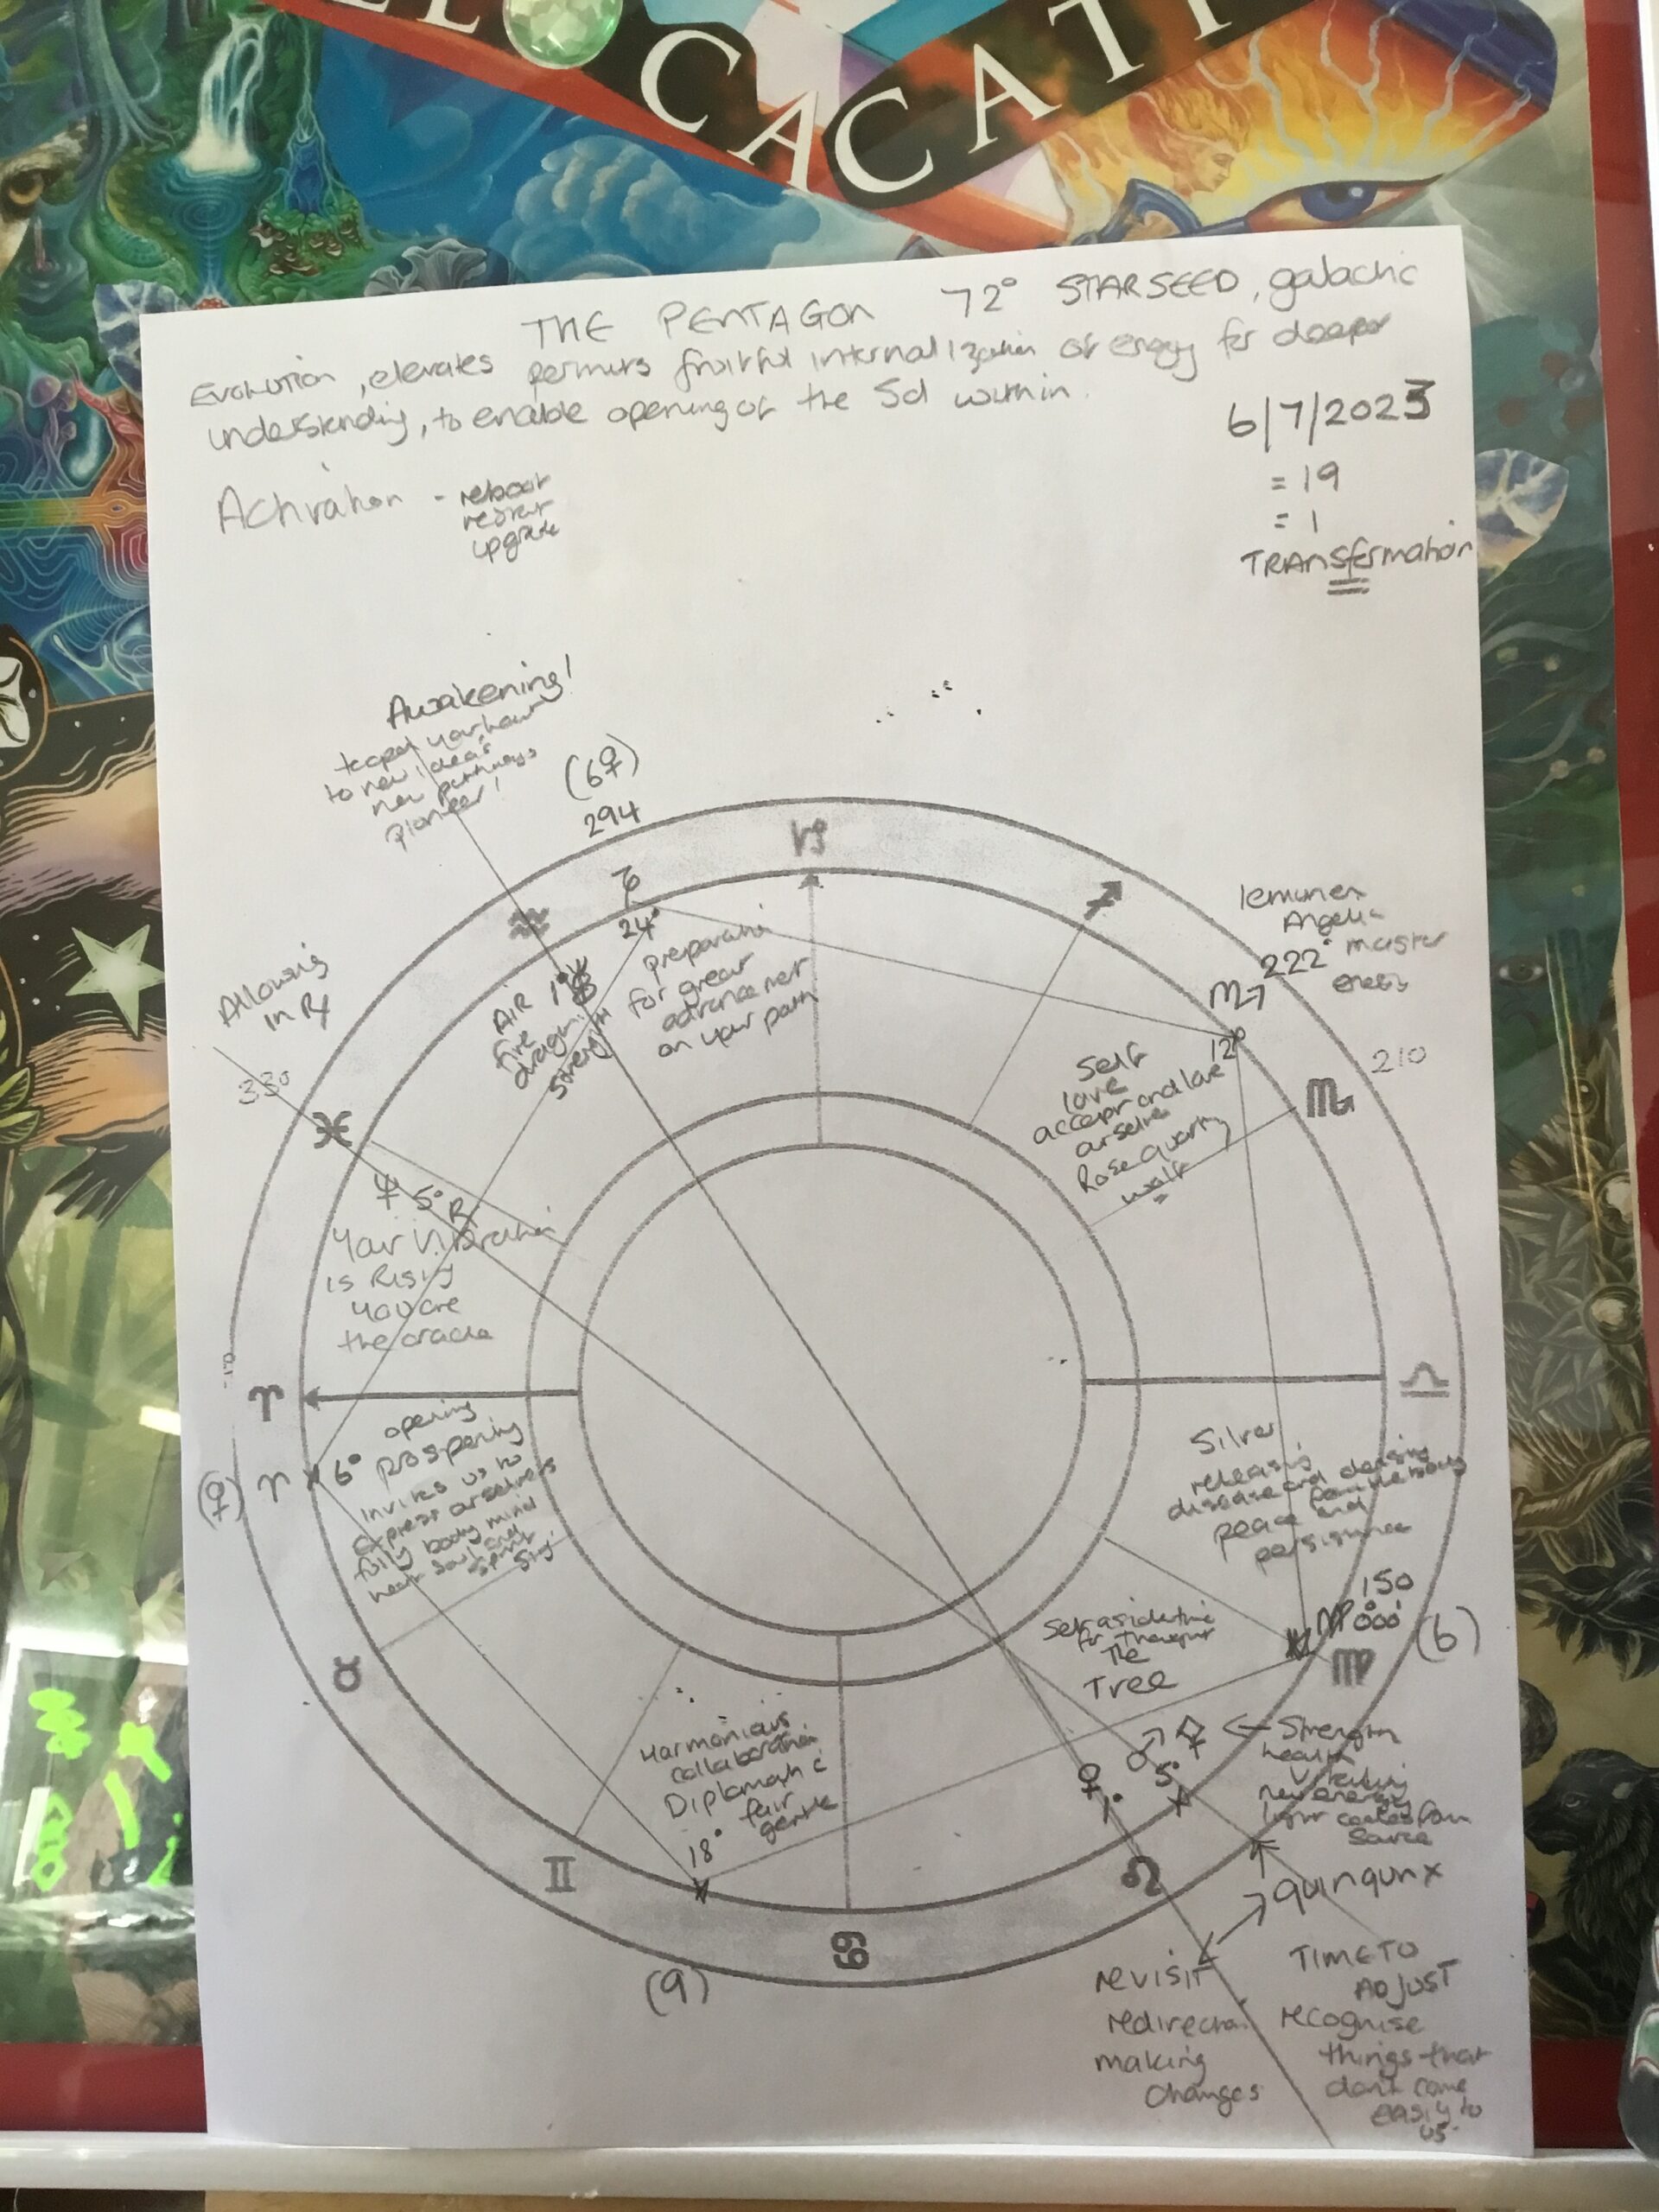 CACATI
THE PENTAGON 72° STARSEED, galactic
Evolution, elevates permits fruitful internalization of energy for deeper
understanding, to enable opening of the Sol within.
6/7/2023
= 19
= 1
TRANSformation
Activation - reboot
restart
upgrade
Awakening!
to open your heart
to new ideas
new pathways
pioneer!
(6♀)
294
♑
♒
♑
24°
♐
preparation
for great
advancement
on your path
AIR 1°
fire
dragon
strength
Allowing
in Rx
330
♓
♆ 5° R
Your vibration
is Rising
You are
the oracle
Angelic
222° master
♏→
12°
210
♏
Self
love
accept and love
ourselves
Rose quartz
walk
♈
♎
(♀) ♈ 6°
opening
prospering
invites us to
express ourselves
fully body mind
heart soul and
spirit
Silver
releasing
disease and cleansing
from the body
peace and
persistence
150
♍ 000'
(6)
♍
Set aside time
for thought
The
Tree
♂
5°
♀
1°
← Strength
health
Vitality
new energy
light codes from
Source
♉
♊
Harmonious
collaboration
Diplomatic
fair
gentle
18°
(9)
♋
♌
quinqunx
revisit
redirection
making
changes
TIME TO
ADJUST
recognise
things that
dont come
EASILY to
us.